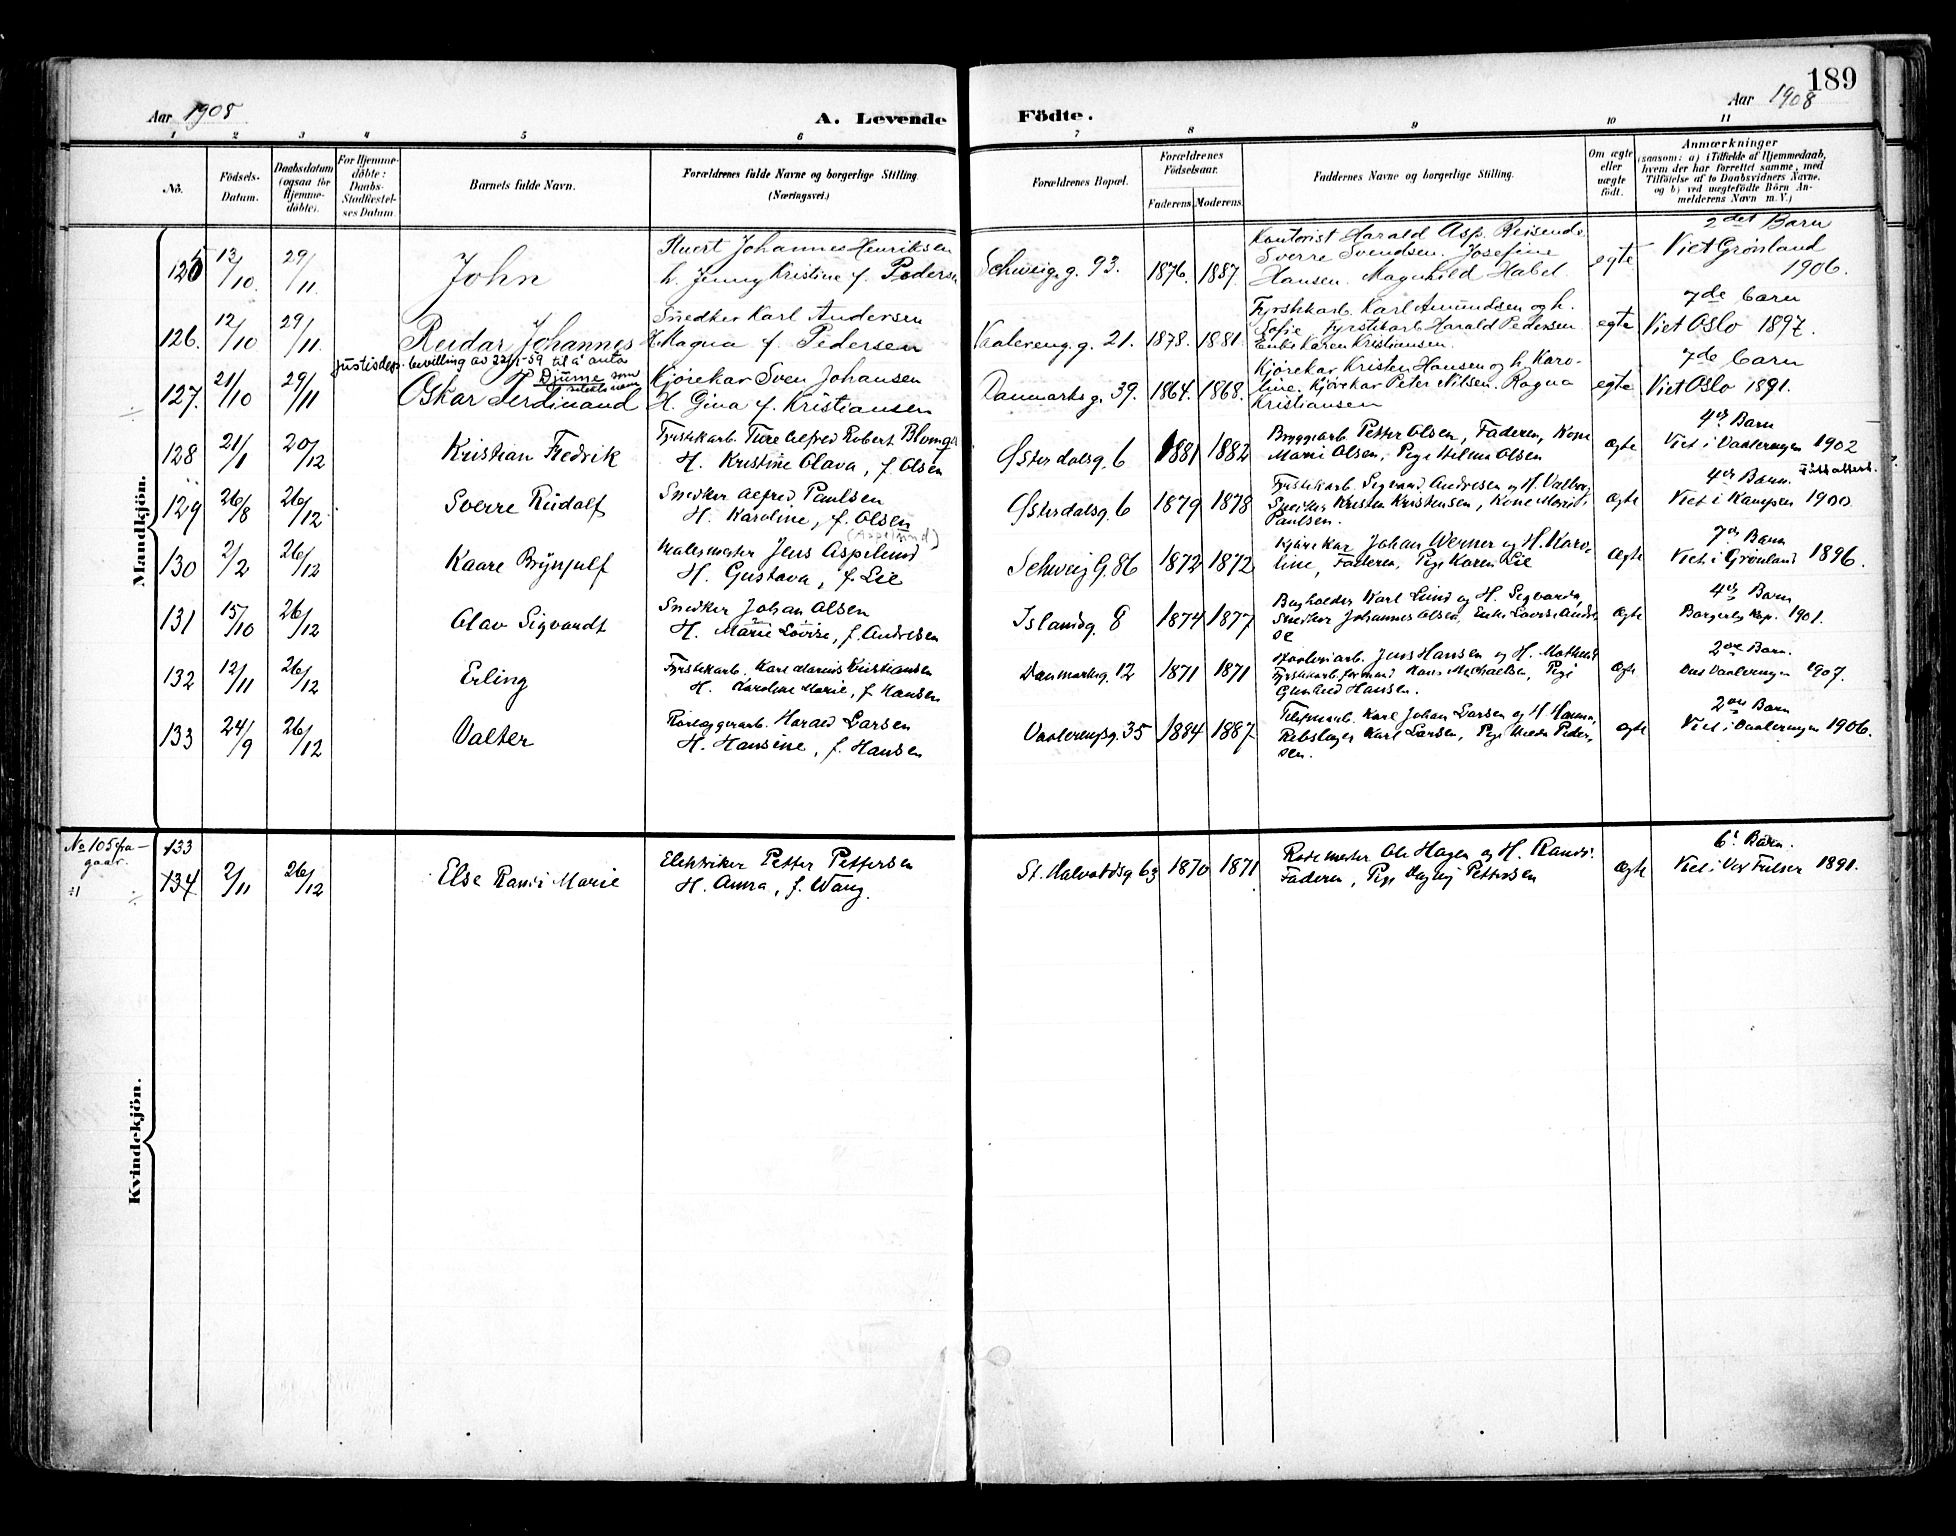 189
Aar 1908
A. Levende
Födte.
Aar 1908
1 2 3 4 5 6 7 8 9 10 11
No.
Födsels-
Datum.
Daabsdatum
(ogsaa for
Hjemme-
döbte).
For Hjemme-
döbte:
Daabs-
Stadfæstel-
ses Datum
Barnets fulde Navn.
Forældrenes fulde Navne og borgerlige Stilling.
(Næringsvei.)
Forældrenes Bopæl.
Forældrenes
Födselsaar.
Faderens Moderens.
Faddernes Navne og borgerlige Stilling.
Om ægte
eller
uægte
födt.
Anmærkninger
(saasom: a) i Tilfælde af Hjemmedaab,
hvem der har forrettet samme, med
Tilföielse af to Daabsvidners Navne.
og b) ved uægtefödte Börn An-
melderens Navn m. V.)
Mandkjön.
125 13/10. 29/11. John
Johannes Henriksen
h. Jenny Kristine f. Pedersen
Schweig. g. 93. 1876. 1887.
Kontorist Harald Asp. Reisende
Sverre Svendsen. Josefine
Hansen. Magnhild Habel
egte
2det Barn
Viet Grønland
1906.
126. 12/10 29/11. Reidar Johannes
Snedker Karl Andersen
H. Magna f. Pedersen
Vaalereng. g. 21. 1878. 1881
Fyrstikarb. Karl Amundsen og h.
Sofie, Fyrstikarb Harald Pedersen
Enke Karen Kristiansen.
egte
7de barn
Viet Oslo 1897.
Justisdep. bevilling av 22/1-59 til å anta
Djurne som
slektsnavn
127. 21/10 29/11 Oskar Ferdinand
Kjörekar Sven Johansen
H. Gina f. Kristiansen
Danmarks g. 39. 1864. 1868.
Kjørekar Kristen Hansen og h. Karo-
line. Kjörkar Peter Nilsen. Ragna
Kristiansen
egte
7de barn
Viet Oslo 1891.
128 21/1 20/12 Kristian Fredrik
Fyrstikarb. Ture Alfred Robert Blomge
H. Kristine Olava, f. Olsen
Østerdalsg. 6 1881 1882
Bryggearb. Petter Olsen, Faderen, Kone
Marie Olsen, Pige Hilma Olsen
ægte
4de Barn
Viet i Vaalerengen 1902
129 26/8 26/12 Sverre Rudolf
Snedker Alfred Paulsen
H. Karoline, f. Olsen
Østerdalsg. 6 1879 1878
Fyrstikarb. Sigvard Andresen og H. Valborg,
Snedker Kristen Kristensen, Kone Marie
Paulsen.
ægte
4de Barn.
Viet i Kampen 1900
(Aspelund)
130 2/2 26/12 Kaare Brynjulf
Malermester Jens Aspelund
H. Gustava, f. Lie
Schweig G. 86 1872 1872
Kjørekar Johan Werner og H. Karo-
line, Faderen, Pige Karen Lie
ægte
7de Barn
Viet i Grønland 1896.
131 15/10 26/12 Olav Sigvardt
Snedker Johan Olsen
H. Marie Lovise, f. Andresen
Islandsg. 8 1874 1877
Bogholder Karl Lund og H. Sigvarda,
Snedker Johannes Olsen, Enke Lovise Andre
se
ægte
4de Barn
Borgerlig Kap. 1901.
132 12/11 26/12 Erling
Fyrstikarb. Karl Marius Kristiansen
H. Karoline Marie, f. Hansen
Danmarksg. 12 1871 1871
Jens Hansen og H. Mathild
Fyrstikarb. formand Hans Michaelsen, Pige
Gunhild Hansen.
ægte
2de Barn.
Vaalerengen 1907.
133 24/9 26/12 Valter
Rørlæggerarb. Harald Larsen
H. Hansine, f. Hansen
Vaalerengsg. 35 1884 1887
Karl Johan Larsen og H. Hanna,
Rebslager Karl Larsen, Pige Peder-
sen.
ægte
2de Barn
Viet i Vaalerengen 1906.
Kvindekjön.
No 105 fra-
gaar.
÷1
133
134 2/11 26/12 Else Randi Marie
Elektriker Petter Pettersen
H. Anna, f. Wang.
St. Halvardsg 63 1870 1871
Rodemester Ole Hagen og H. Randi.
Faderen, Pige Dagny Pettersen
ægte
6te Barn.
Viet i Vor Frelser 1891.